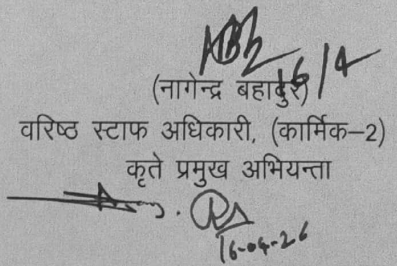 16/4
(नागेन्द्र बहादुर)
वरिष्ठ स्टाफ अधिकारी, (कार्मिक-2)
कृते प्रमुख अभियन्ता
16-04-26